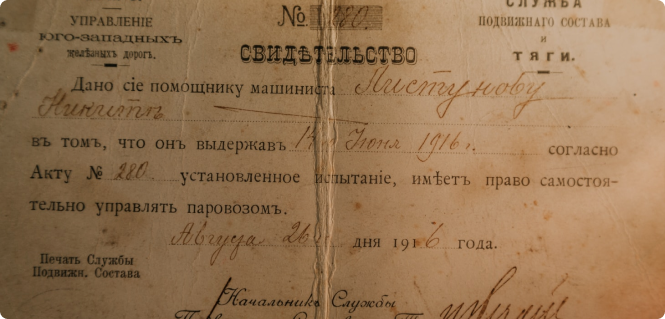 УПРАВЛЕНІЕ
ЮГО-ЗАПАДНЫХЪ
желѣзныхъ дорогъ.
№ 280.
СЛУЖБА
ПОДВИЖНАГО СОСТАВА
И
ТЯГИ.
СВИДѢТЕЛЬСТВО
Дано сіе помощнику машиниста Пистунову
Никитѣ
въ томъ, что онъ выдержавъ 14 Іюня 1916 г. согласно
Акту № 280 установленное испытаніе, имѣетъ право самостоя-
тельно управлять паровозомъ.
Августа 26 дня 1916 года.
Печать Службы
Подвижн. Состава
Начальникъ Службы